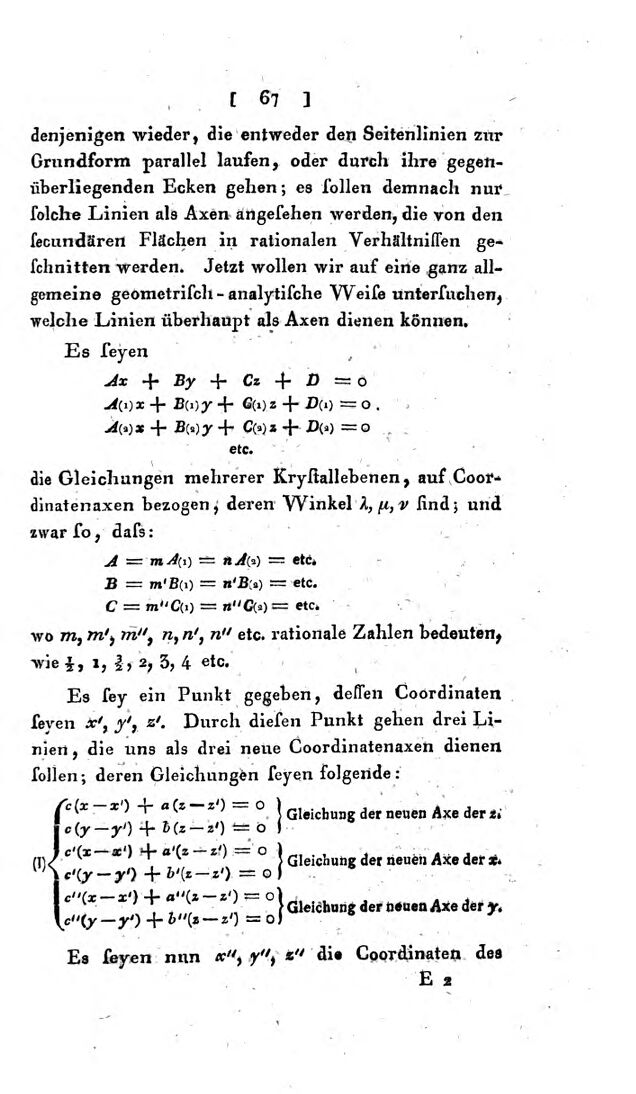 [ 67 ]
denjenigen wieder, die entweder den Seitenlinien zur
Grundform parallel laufen, oder durch ihre gegen-
überliegenden Ecken gehen; es ſollen demnach nur
ſolche Linien als Axen angeſehen werden, die von den
ſecundären Flächen in rationalen Verhältniſſen ge-
ſchnitten werden. Jetzt wollen wir auf eine ganz all-
gemeine geometriſch-analytiſche Weiſe unterſuchen,
welche Linien überhaupt als Axen dienen können.
Es ſeyen
Ax + By + Cz + D = 0
A(1)x + B(1)y + C(1)z + D(1) = 0.
A(2)x + B(2)y + C(2)z + D(2) = 0
etc.
die Gleichungen mehrerer Kryſtallebenen, auf Coor-
dinatenaxen bezogen, deren Winkel λ, μ, ν ſind; und
zwar ſo, daſs:
A = mA(1) = nA(2) = etc.
B = m'B(1) = n'B(2) = etc.
C = m''C(1) = n''C(2) = etc.
wo m, m', m'', n, n', n'' etc. rationale Zahlen bedeuten,
wie ½, 1, 3/2, 2, 3, 4 etc.
Es ſey ein Punkt gegeben, deſſen Coordinaten
ſeyen x', y', z'. Durch dieſen Punkt gehen drei Li-
nien, die uns als drei neue Coordinatenaxen dienen
ſollen; deren Gleichungen ſeyen folgende:
c(x—x') + a(z—z') = 0
c(y—y') + b(z—z') = 0 } Gleichung der neuen Axe der z.
(I) { c'(x—x') + a'(z—z') = 0
c'(y—y') + b'(z—z') = 0 } Gleichung der neuen Axe der x.
c''(x—x') + a''(z—z') = 0
c''(y—y') + b''(z—z') = 0 } Gleichung der neuen Axe der y.
Es ſeyen nun x'', y'', z'' die Coordinaten des
E 2